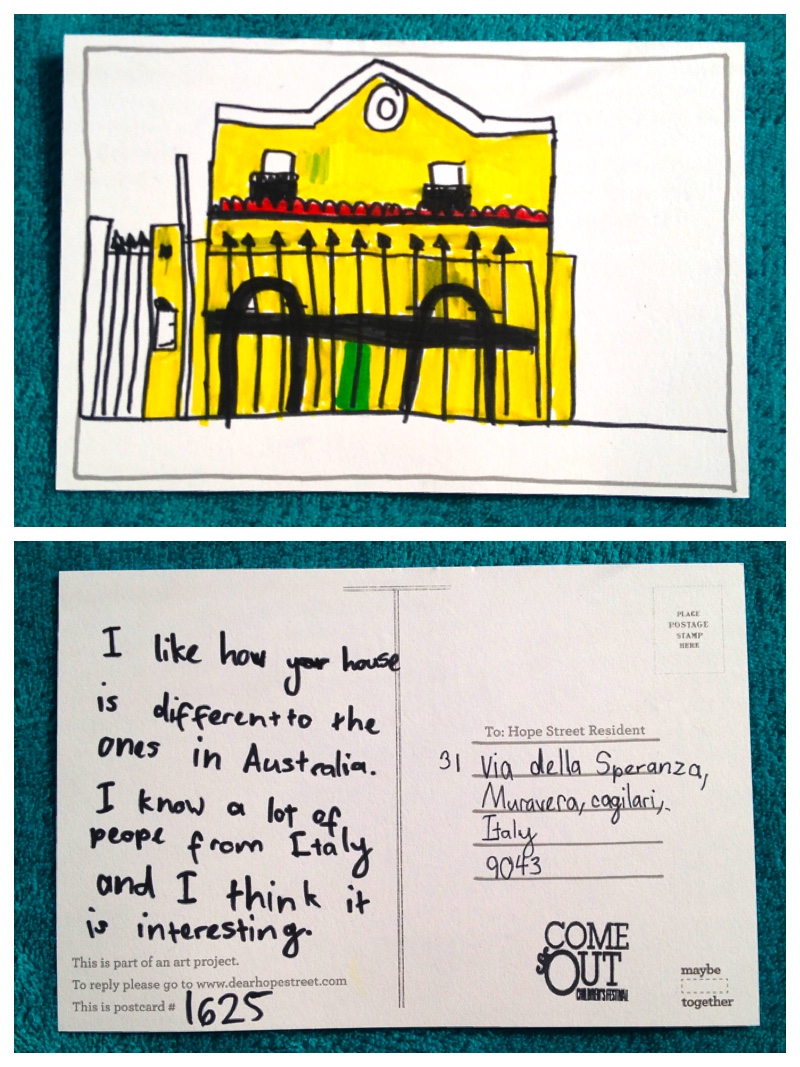 I like how your house
is different to the
ones in Australia.
I know a lot of
peope from Italy
and I think it
is interesting.
This is part of an art project.
To reply please go to www.dearhopestreet.com
This is postcard # 1625
PLACE
POSTAGE
STAMP
HERE
To: Hope Street Resident
31 Via della Speranza,
Muravera, cagilari,.
Italy
9043
COME
OUT
CHILDREN'S FESTIVAL
maybe
together